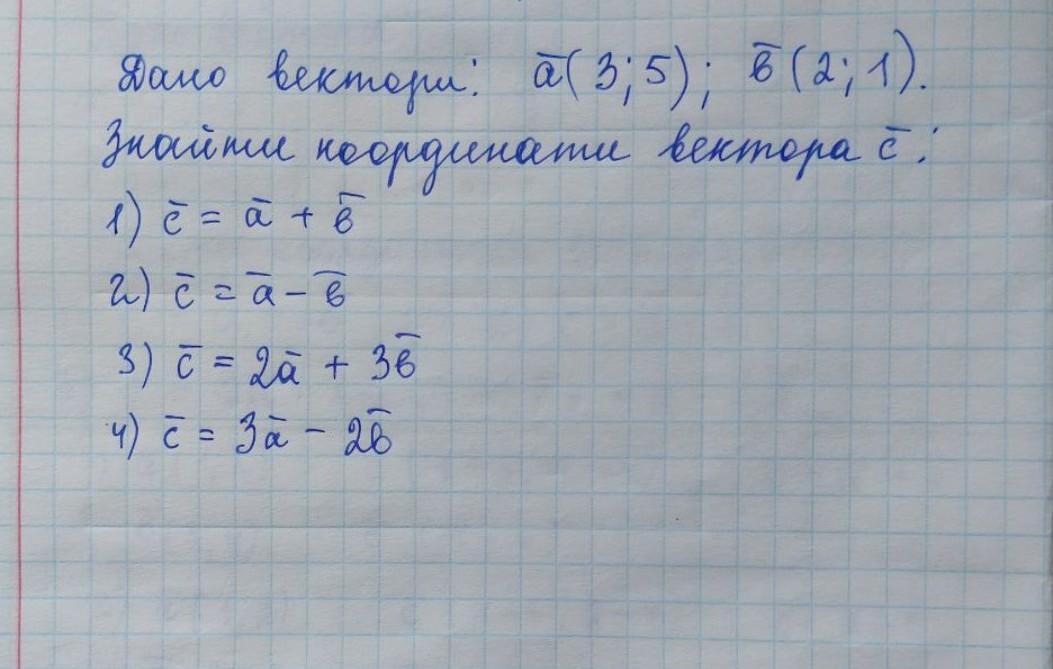 Дано вектори: a̅(3;5); в̅(2;1).
Знайти координати вектора c̅:
1) c̅ = a̅ + в̅
2) c̅ = a̅ - в̅
3) c̅ = 2a̅ + 3в̅
4) c̅ = 3a̅ - 2в̅